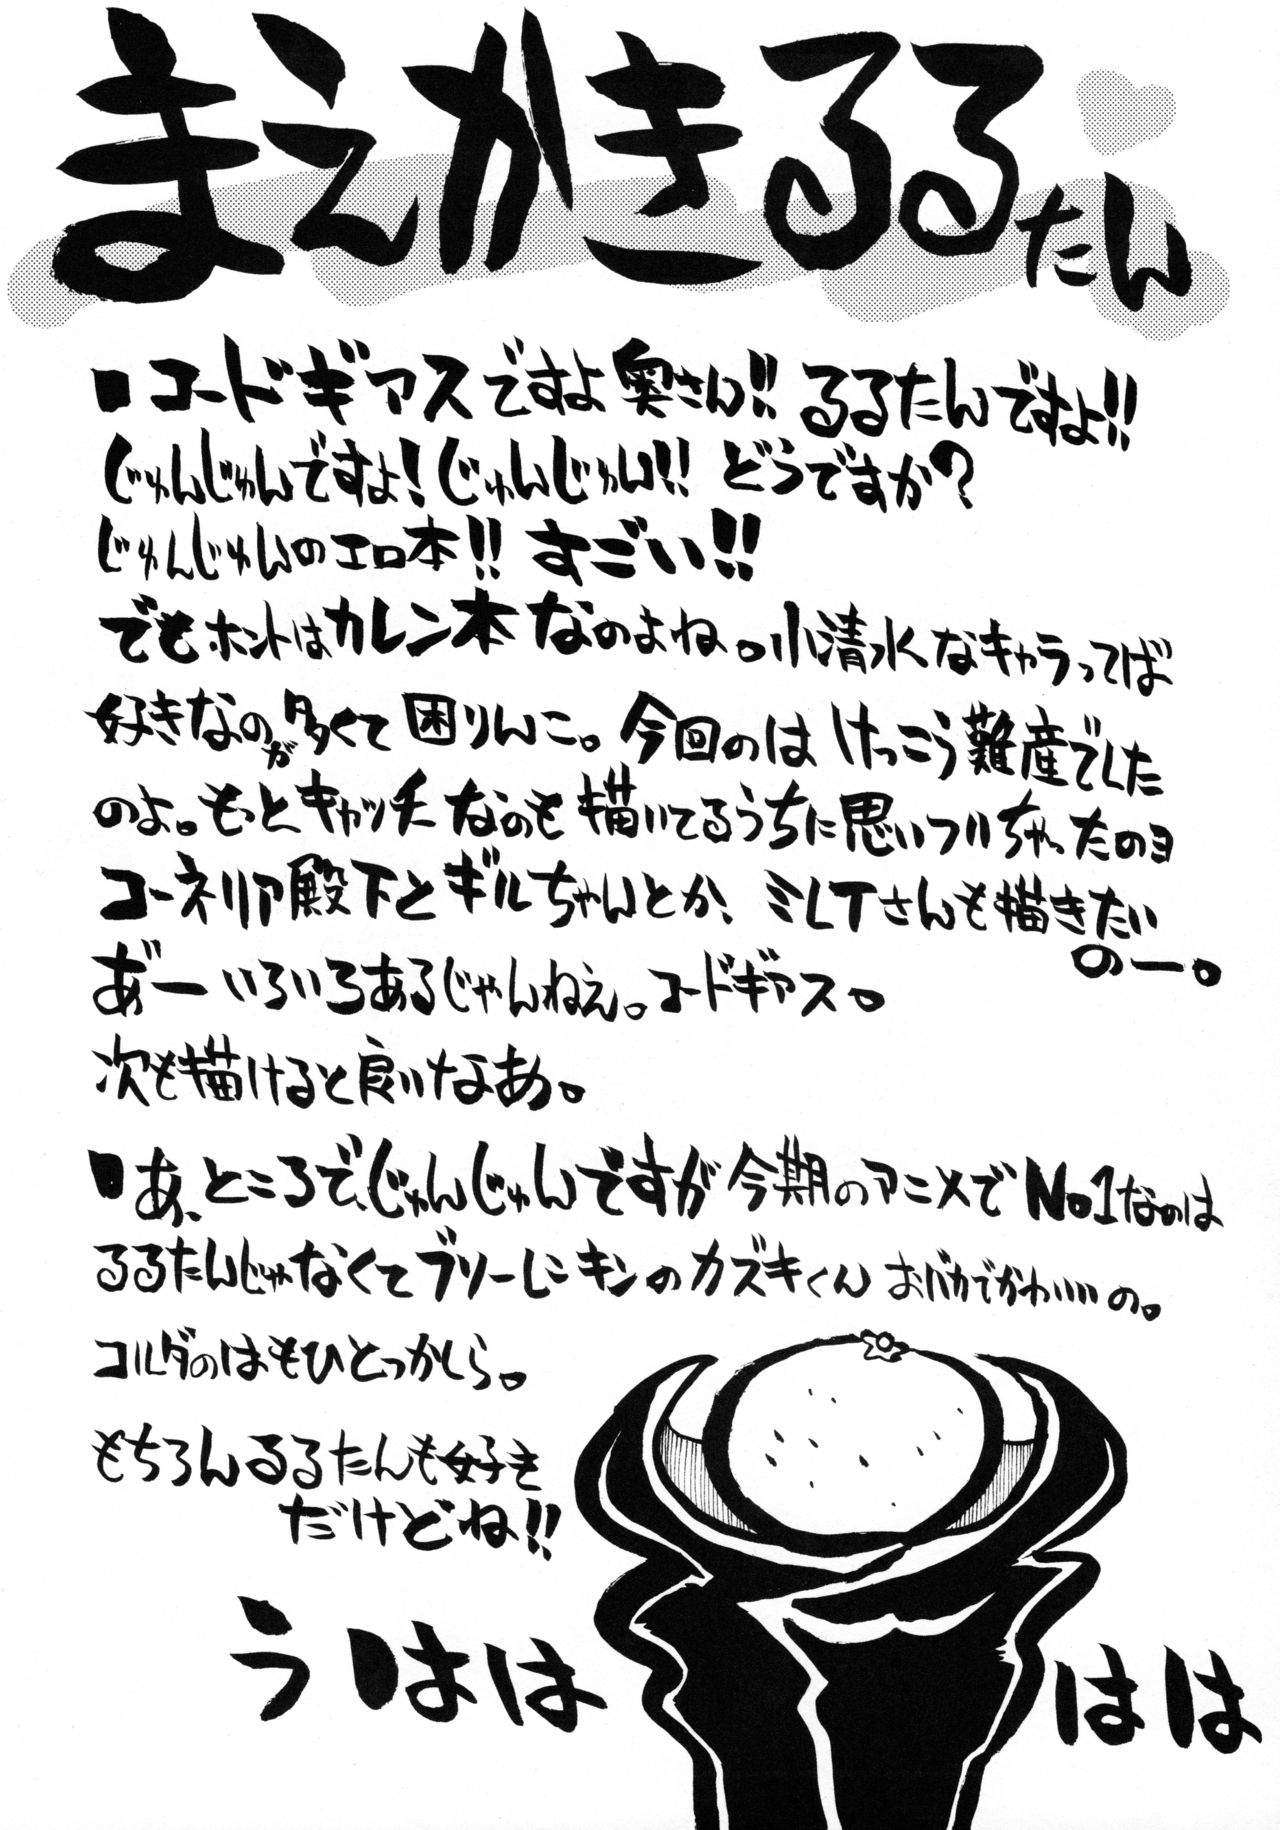 まえかきるるたん
■コードギアスですよ奥さん!! るるたんですよ!!
じゅんじゅんですよ! じゅんじゅん!! どうですか?
じゅんじゅんのエロ本!! すごい!!
でもホントはカレン本なのよね。小清水なキャラってば
好きなのが多くて困りんこ。今回のはけっこう難産でした
のよ。もっとキャッチなのも描いてるうちに思いついちゃったのヨ
コーネリア殿下とギルちゃんとか、ミレイさんも描きたい
のー。
あ゛ーいろいろあるじゃんねえ。コードギアス。
次も描けると良いなあ。
■あ、ところで、じゅんじゅんですが今期のアニメでNo.1なのは
るるたんじゃなくてブリーレンキンのカズキくん おバカでかわいいの。
コルダのはもひとつかしら。
もちろんるるたんも好き
だけどね!!
うははははは